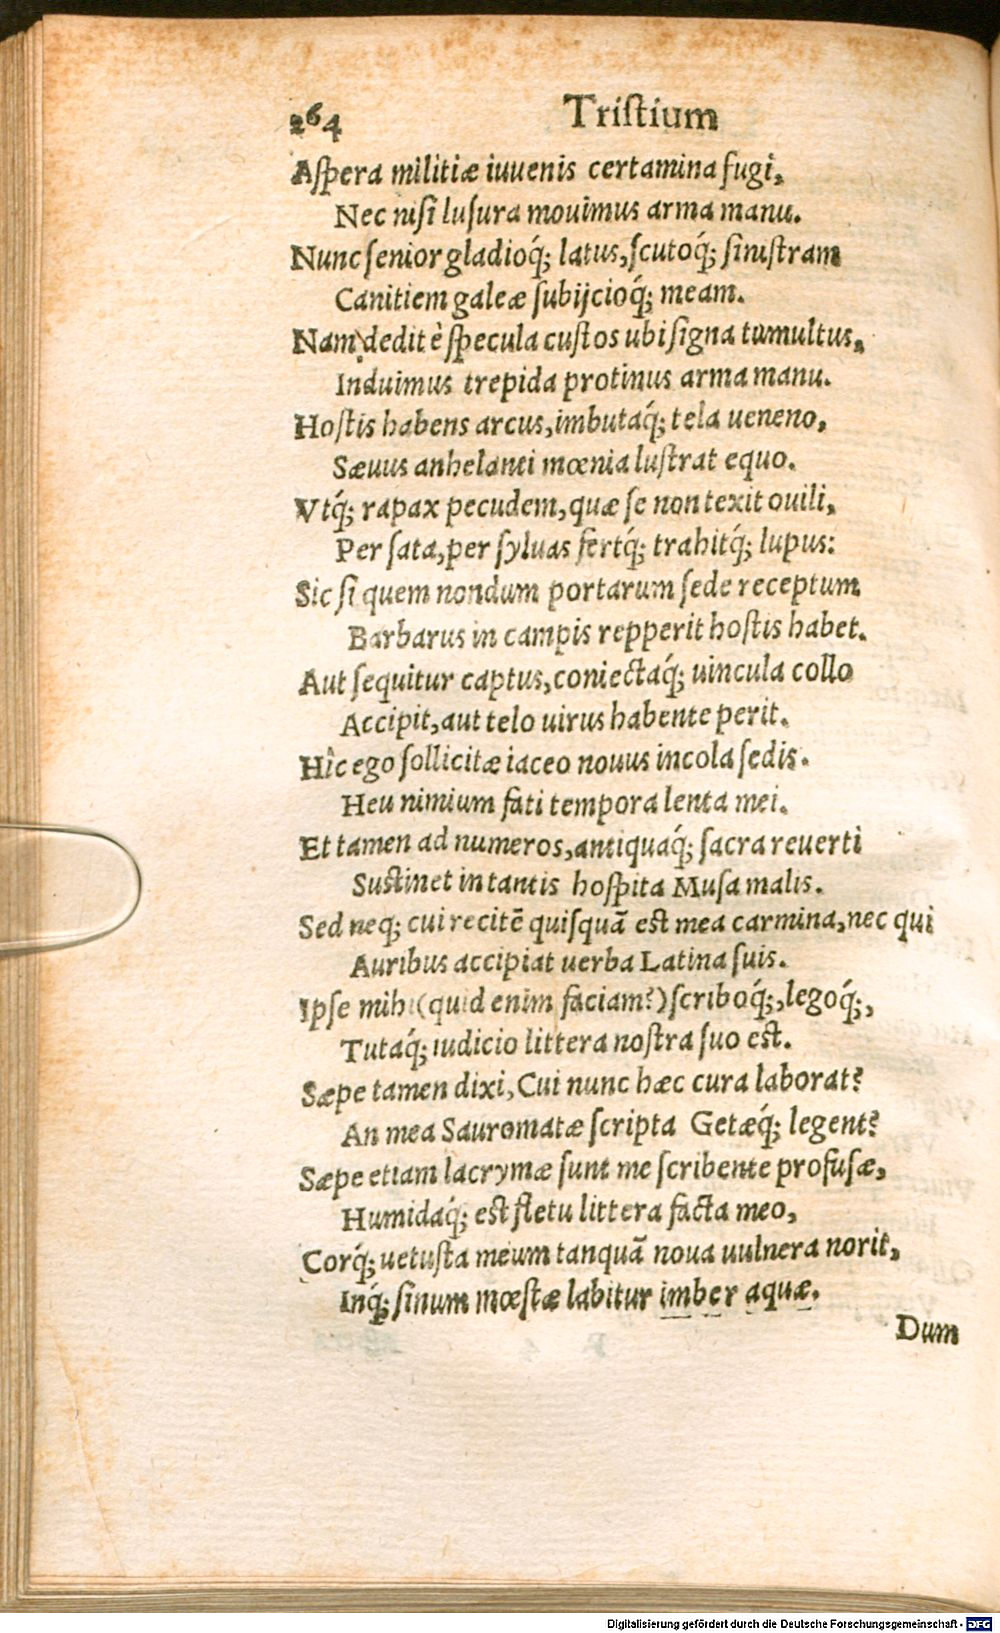 264 Tristium
Aſpera militiæ iuuenis certamina fugi,
Nec niſi luſura mouimus arma manu.
Nunc ſenior gladioq́; latus, ſcutoq́; ſiniſtram
Canitiem galeæ ſubijcioq́; meam.
Nam dedit è ſpecula cuſtos ubi ſigna tumultus,
Induimus trepida protinus arma manu.
Hoſtis habens arcus, imbutaq́; tela ueneno,
Sæuus anhelanti mœnia luſtrat equo.
Vtq́; rapax pecudem, quæ ſe non texit ouili,
Per ſata, per ſyluas fertq́; trahitq́; lupus:
Sic ſi quem nondum portarum ſede receptum
Barbarus in campis repperit hoſtis habet.
Aut ſequitur captus, coniectaq́; uincula collo
Accipit, aut telo uirus habente perit.
Hìc ego ſollicitæ iaceo nouus incola ſedis.
Heu nimium fati tempora lenta mei.
Et tamen ad numeros, antiquaq́; ſacra reuerti
Suſtinet in tantis hoſpita Muſa malis.
Sed neq; cui recitē quiſquā eſt mea carmina, nec qui
Auribus accipiat uerba Latina ſuis.
Ipſe mihi (quid enim faciam?) ſcriboq́;, legoq́;,
Tutaq́; iudicio littera noſtra ſuo eſt.
Sæpe tamen dixi, Cui nunc hæc cura laborat?
An mea Sauromatæ ſcripta Getæq́; legent?
Sæpe etiam lacrymæ ſunt me ſcribente profuſæ,
Humidaq́; eſt fletu littera facta meo,
Corq́; uetuſta meum tanquā noua uulnera norit,
Inq́; ſinum mœſtæ labitur imber aquæ.
Dum
Digitalisierung gefördert durch die Deutsche Forschungsgemeinschaft - DFG